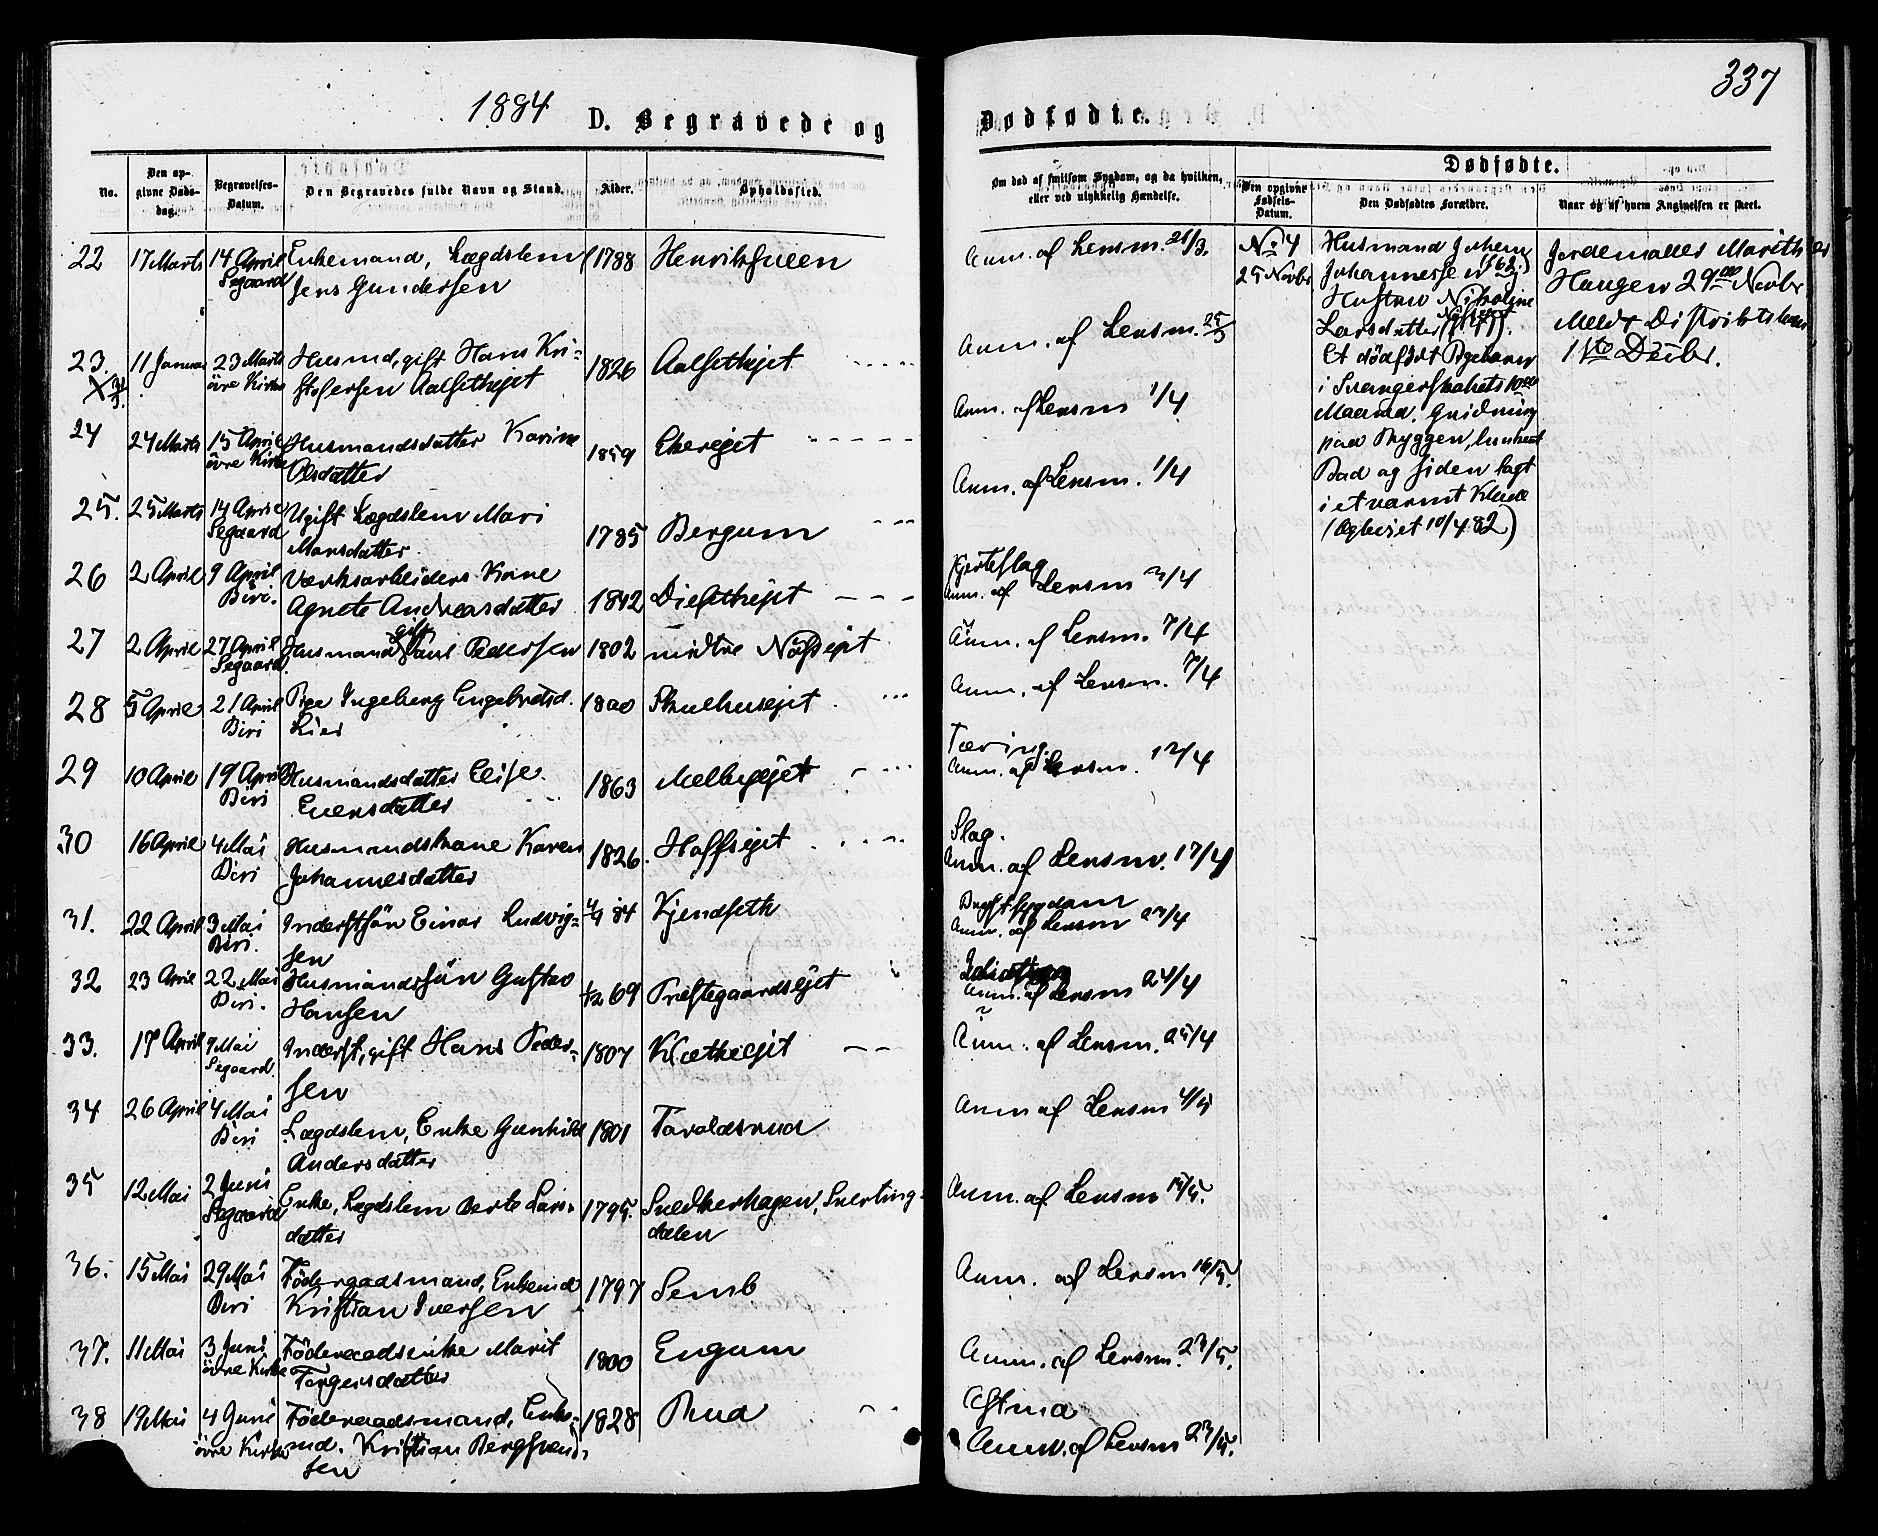 1884
D. Begravede og
No.
Den op-
givne Døds-
dag.
Begravelses-
Datum.
Den Begravedes fulde Navn og Stand.
Alder.
Opholdssted.
22 17 Marts 14 April Enkemand, Lægdslem 1788 Henriksveen
Segaard Jens Gundersen
23. 11 Januar 23 Marts Husmd, gift Hans Kri- 1826 Aalsethejet
øvre Kirke stofersen Aalsethejet
24 24 Marts 15 April Husmandsdatter Karine 1859 Ekerejet
øvre Kirke Olsdatter
25. 25 Marts 14 April Ugift Lægdslem Mari 1785 Bergum
Segaard Monsdatter
26 2 April 9 April Værksarbeiders Kone 1842
Biri. Agnete Andreasdatter
27 2 April 27 April Husmand gift Paul Pedersen 1802 midtre
Segaard
28 5 April 21 April Pige Ingeborg Engebretsd. 1800 Skulhusejet
Biri Lier
29 10 April 19 April Husmandsdatter Elise 1863 Melbyejet
Biri Evensdatter
30 16 April 4 Mai Husmandskone Karen 1826. Hoffsejet
Biri Johannesdatter
31. 22 April 3 Mai Inderstsøn Einar Ludvig- 84 Kjendseth
Biri. sen
32 23 April 22 Mai Husmandssøn Gustav 69 Præstegaardsejet
Biri. Hansen
33. 17 April 9 Mai Inderst, gift Hans Peder- 1807 Klætheejet
Segaard sen
34 26 April 4 Mai Lægdslem, Enke Gunhild 1801 Taraldsrud
Biri Andersdatter
35 12 Mai 2 Juni Enke, Lægdslem Berte Lars- 1795. Snedkerhagen, Snerting-
Segaard datter dalen
36. 15 Mai 29 Mai Föderaadsmand, Enkemd 1797 Semb
Biri Kristian Iversen
37. 11 Mai 3 Juni Föderaadsenke Marit 1800 Engum
øvre Kirke Torgersdatter
38 19 Mai 4 Juni Föderaadsmand, Enke- 1828 Rud
øvre Kirke md. Kristian Bergsvend-
sen
337
Dødfødte.
Om død af smitsom Sygdom, og da hvilken,
eller ved ulykkelig Hændelse.
Dødfødte.
Den opgivne
Fødsels-
Datum.
Den Dødfødtes Forældre.
Naar og af hvem Angivelsen er skeet.
Anm. af Lensm. 21/3.
Anm. af Lensm. 25/3
Anm. af Lensm 1/4
Anm. af Lensm. 1/4
Hjerteslag
Anm. af Lensm 3/4
Anm. af Lensm. 7/4
Anm. af Lensm. 7/4
Tæring.
Anm. af Lensm. 12/4
Slag.
Anm. af Lensm. 17/4
Brystsygdom
Anm. af Lensm 23/4
Anm. af Lensm 24/4
Anm. af Lensm. 25/4
Anm af Lensm 4/5
Anm. af Lensm 15/5.
Anm. af Lensm 16/5.
Anm. af Lensm. 23/5.
Astma
Anm. af Lensm 23/5.
No 4
25 Novbr
Husmand Johan
Johannessen
Hustru Nikoline
Larsdatter
Et dødfødt Pigebarn
i Svangerskabets 10de
Maaned. Gnidning
paa Ryggen, lunkent
Bad og siden lagt
i et varmt Klæde
Jordemoder Marith
Haugen 29de Novbr
Meldt Distriktslæge
1ste Decbr.